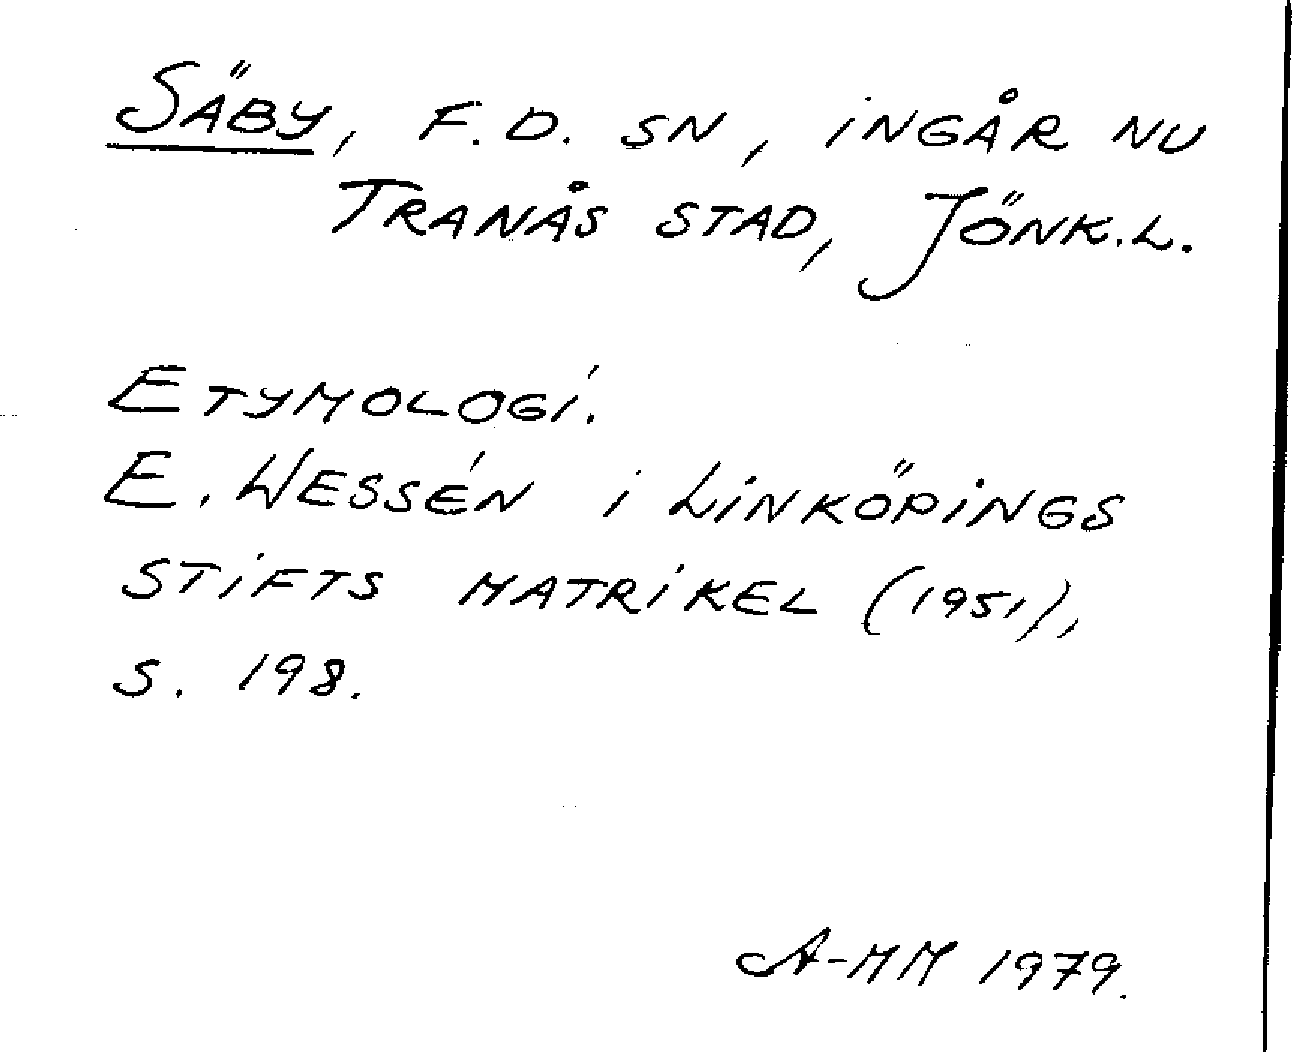 SÄBY, F.D. SN, INGÅR NU
TRANÅS STAD, JÖNK.L.
ETYMOLOGI.
E. WESSÉN I LINKÖPINGS
STIFTS MATRIKEL (1951),
S. 198.
A-MM 1979.